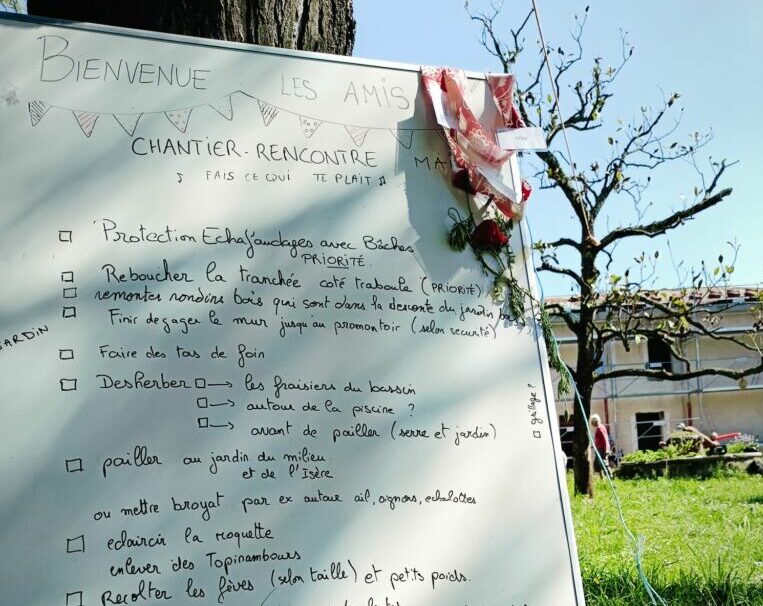 BIENVENUE LES AMIS
CHANTIER-RENCONTRE MA
♪ FAIS CE QUI TE PLAIT ♫
□ Protection Echafaudages avec Bâches
PRIORITÉ
□ Reboucher la tranchée coté traboule (PRIORITÉ)
□ remonter rondins bois qui sont dans la descente du jardin
□ Finir degager le mur jusqu'au promontoir (selon securité)
JARDIN
□ Faire des tas de foin
□ Desherber □→ les fraisiers du bassin
□→ autour de la piscine ?
□→ avant de pailler (serre et jardin)
□ grillage ?
□ pailler au jardin du milieu
et de l'Isère
ou mettre broyat par ex autour ail, oignons, echalottes
□ eclaircir la roquette
enlever des Topinambours
□ Recolter les fèves (selon taille) et petits poids.